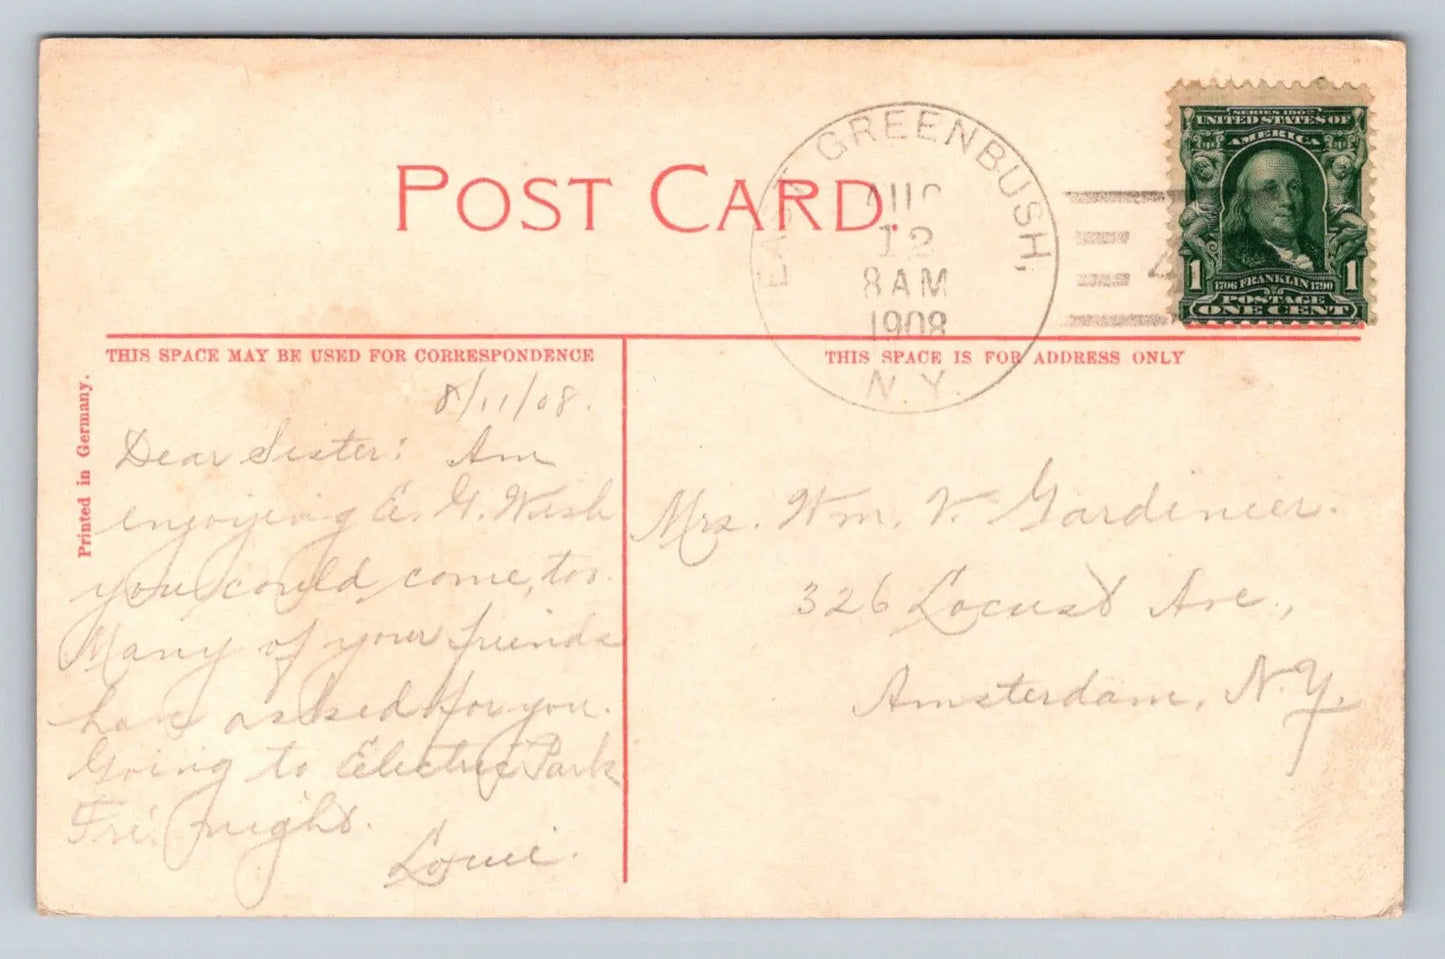 POST CARD.
EAST GREENBUSH,
AUG
12
8 AM
1908
N.Y.
4
SERIES 1902
UNITED STATES OF
AMERICA
1 1
1706 FRANKLIN 1790
POSTAGE
ONE CENT
THIS SPACE MAY BE USED FOR CORRESPONDENCE
THIS SPACE IS FOR ADDRESS ONLY
Printed in Germany.
8/11/08.
Dear Sister: Am
enjoying E. G. Wish
you could come, too.
Many of your friends
have asked for you.
Going to Electric Park
Fri. night.
Louie.
Mrs. Wm. V. Gardinier.
326 Locust Ave.,
Amsterdam, N.Y.